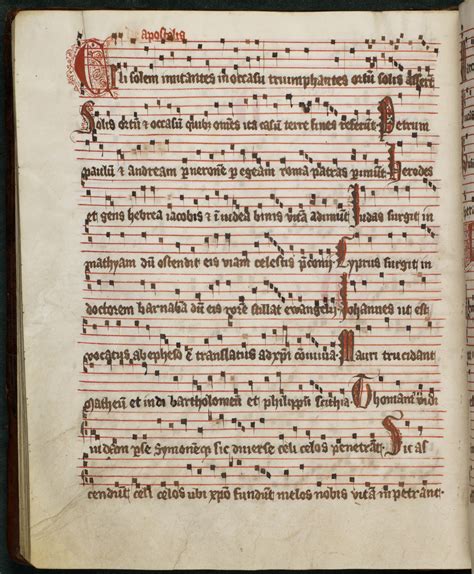 apostolis
Celi solem imitantes in occasu triumphantes ortū solis asserūt
Solis ortū & occasū quibꝫ om̄es ita casū terre fines referūt Petrum
paulū & andream p nerone p egeam roma patras p̄imūt Herodes
et gens hebrea iacobis & ī iudea binis vitā adimūt Iudas surgit in
mathyam dū ostendit eis viam celestis p̄conij Cyprus surgit in
doctorem barnabā dū eis rore stillat ewangelij Iohannes ut est
vocatus ab epheso ē translatus ad xp̄i conviuia Mauri trucidant
Matheū et indi bartholomeū et philippū scithia Thomam vidi
in dam p̄se Symoneqꝫ sic diverse celi celos penetrāt Sic as
cendūt celi celos ubi xp̄o fundūt melos nobis vitā inpetrant